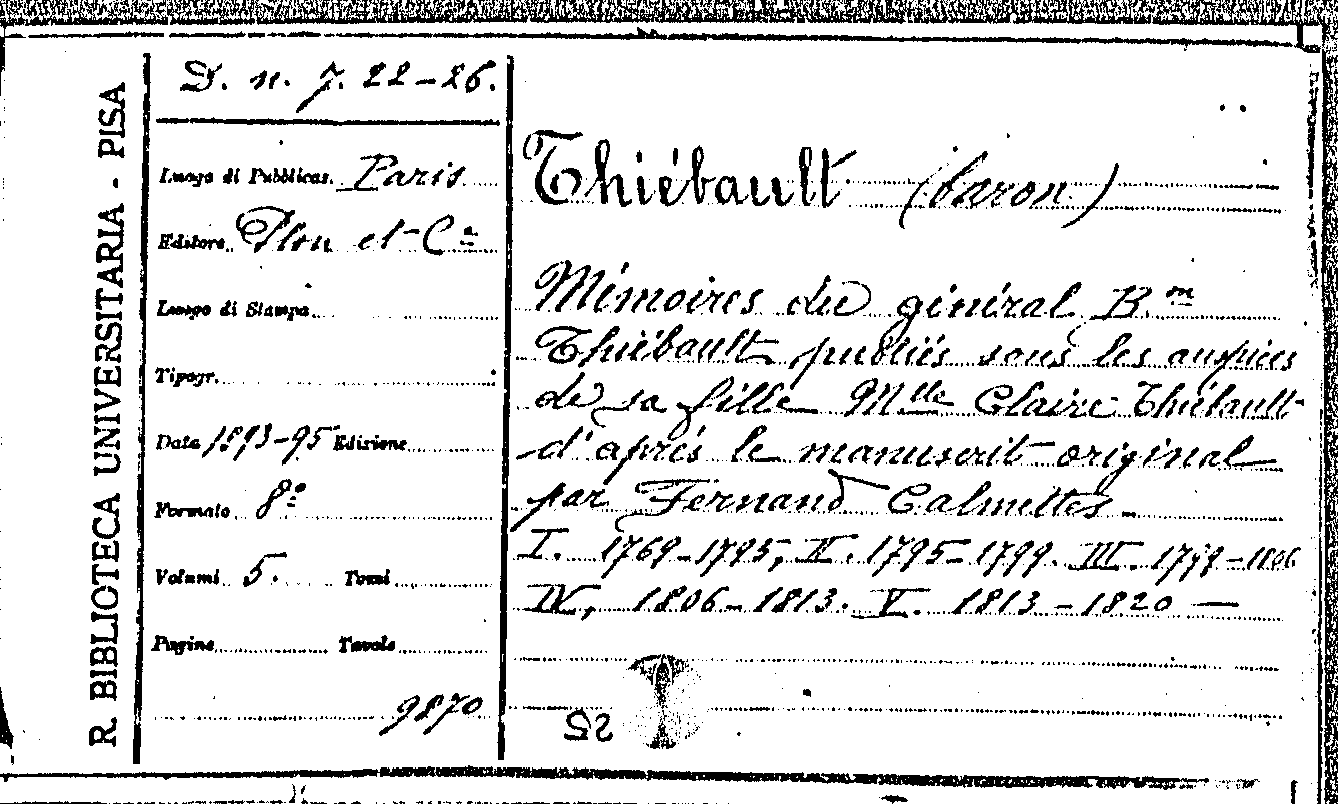 R. BIBLIOTECA UNIVERSITARIA - PISA
D. n. 7. 22-26.
Luogo di Pubblicaz. Paris
Editore Plon et Cᵉ
Luogo di Stampa
Tipogr.
Data 1893-95 Edizione
Formato 8º
Volumi 5. Tomi
Pagine Tavole
9870
Thiébault (baron)
Mémoires du général B.ᵒⁿ
Thiébault publiés sous les auspices
de sa fille Mlle Claire Thiébault
d'après le manuscrit original
par Fernand Calmettes.
I. 1769-1795, II. 1795-1799. III. 1799-1806
IV, 1806-1813. V. 1813-1820 —
25